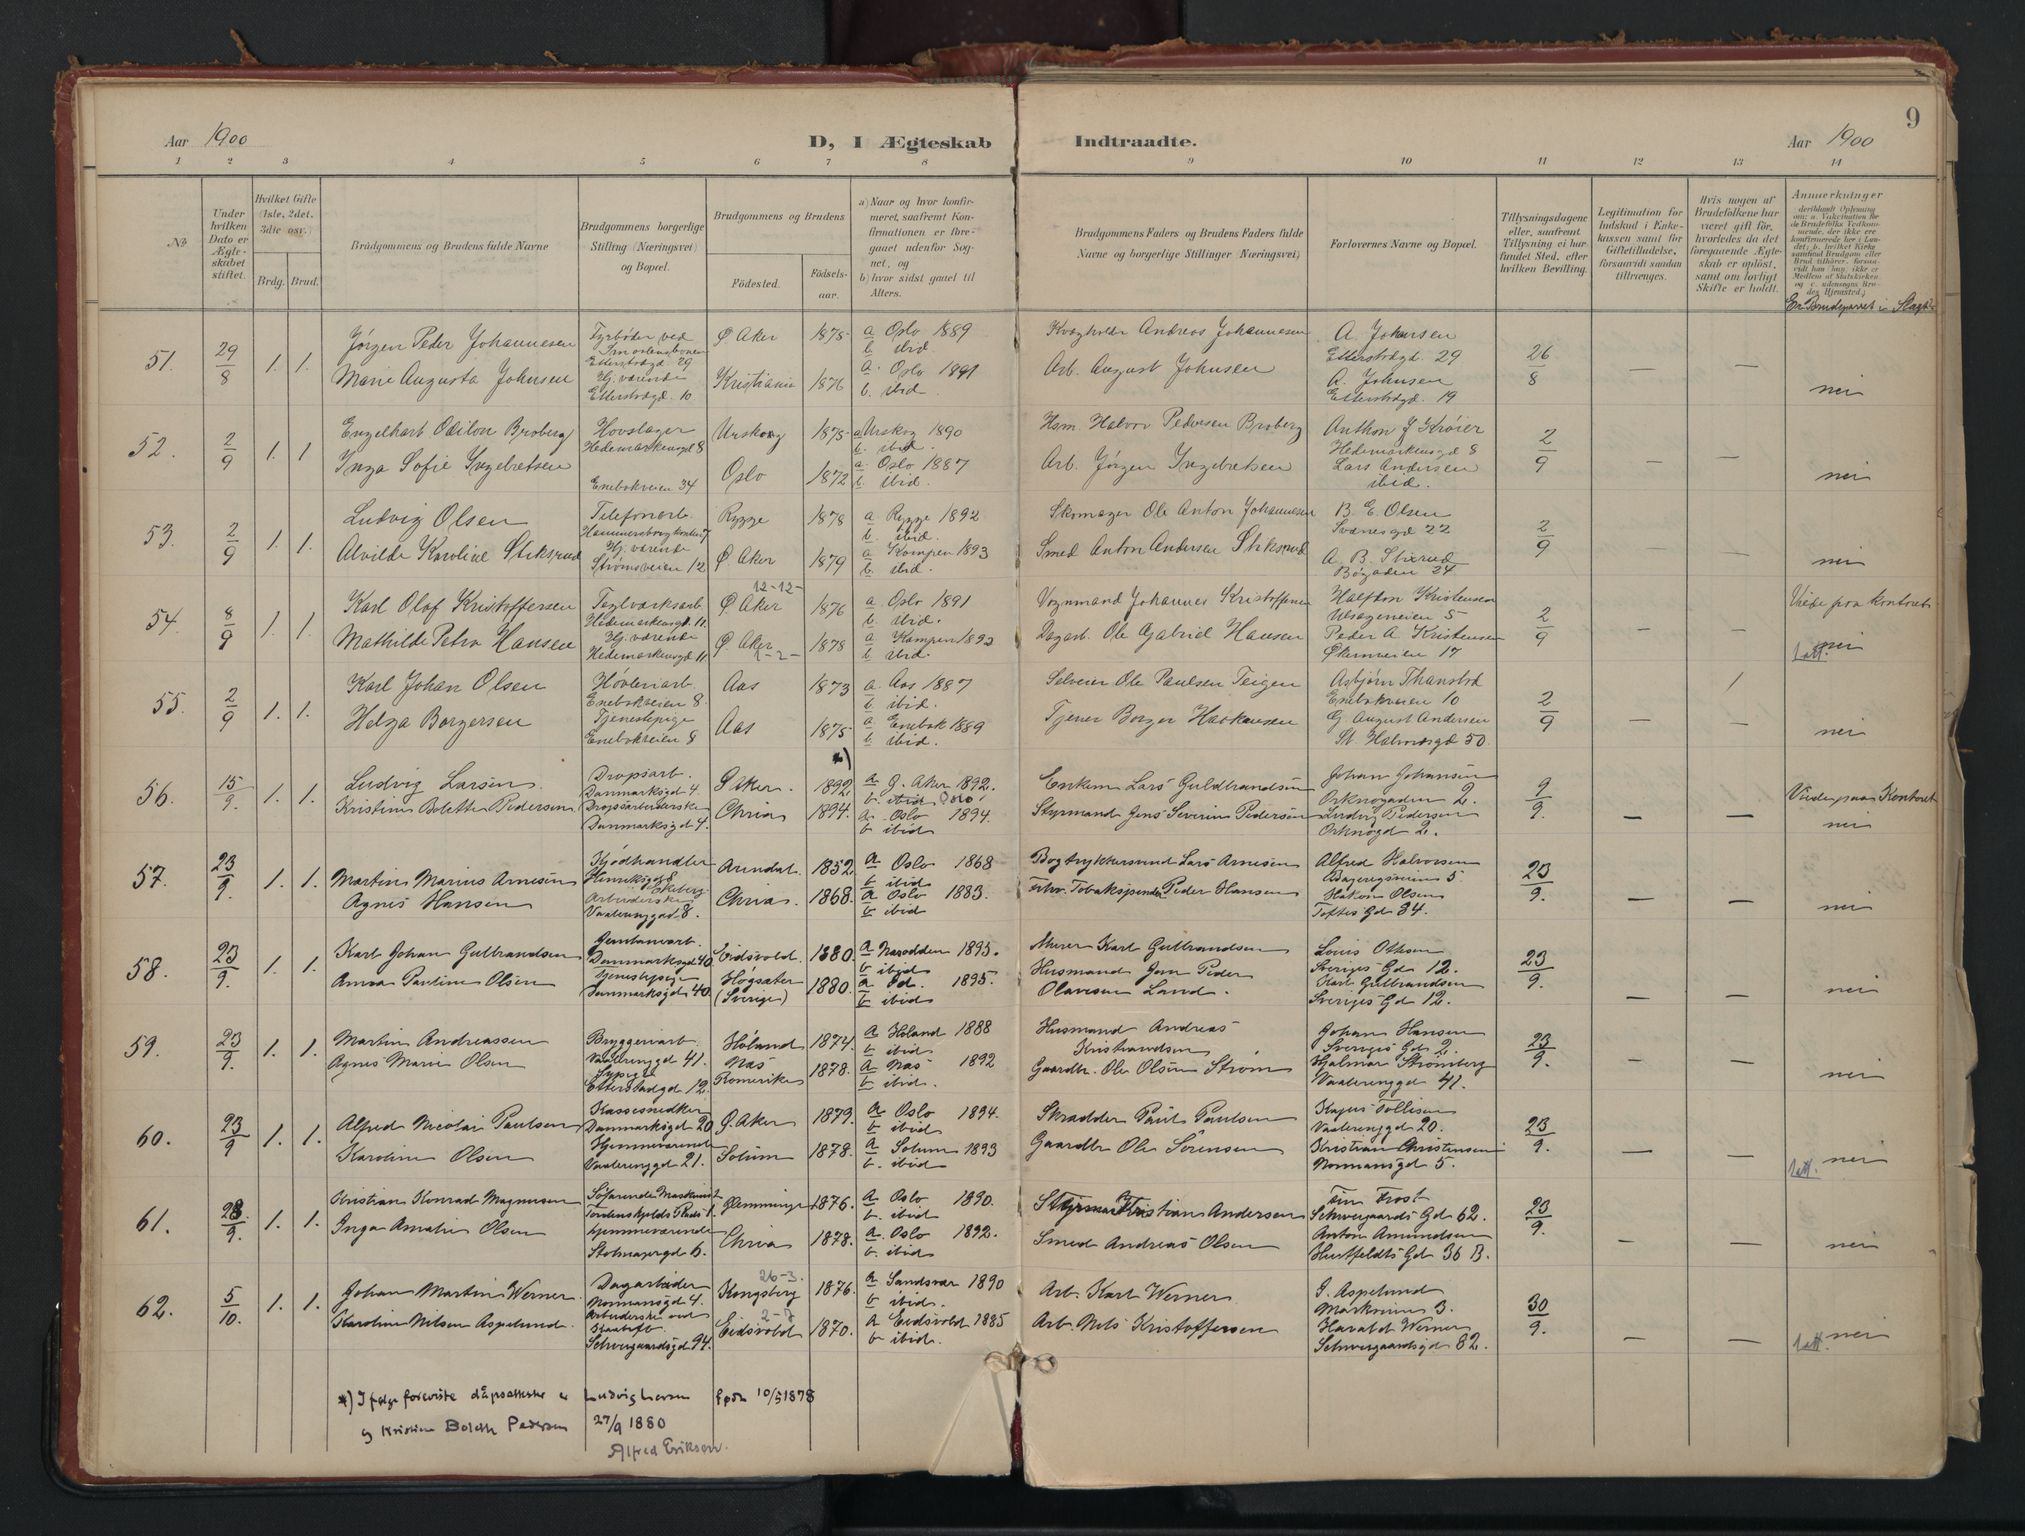 9
Aar 1900
D, I Ægteskab
Indtraadte.
Aar 1900
1 2 3 4 5 6 7 8 9 10 11 12 13 14
No
Under hvilken Dato er Ægteskabet stiftet.
Hvilket Gifte (1ste, 2det, 3die osv.)
Brdg. Brud.
Brudgommens og Brudens fulde Navne
Brudgommens borgerlige Stilling (Næringsvei) og Bopæl.
Brudgommens og Brudens
Fødested.
Fødselsaar.
a) Naar og hvor konfirmeret, saafremt Konfirmationen er foregaaet udenfor Sognet, og
b) hvor sidst gaaet til Alters.
Brudgommens Faders og Brudens Faders fulde Navne og borgerlige Stillinger (Næringsvei)
Forlovernes Navne og Bopæl.
Tillysningsdagene eller, saafremt Tillysning ei har fundet Sted, efter hvilken Bevilling.
Legitimation for Indskud i Enkekassen samt for Giftetilladelse, forsaavidt saadan tiltrænges.
Hvis nogen af Brudefolkene har været gift før, hvorledes da det foregaaende Ægteskab er opløst, samt om lovligt Skifte er holdt.
Anmærkninger
Er Brudeparret i Slægt?
51. 29/8 1. 1.
Jørgen Peder Johannesen
Fyrbøder ved
Etterstadgd. 29
Ø Aker 1875
a Oslo 1889
b. ibid.
Andreas Johannesen
A. Johnsen
Etterstadgd 29
26/8
Marie Augusta Johnsen
Hj. værende
Etterstadgd. 10
Kristiania 1876
a. Oslo 1891
b. ibid
Arb. August Johnsen
A. Johnsen
Etterstadgd. 19
— — nei
52. 2/9 1. 1.
Engelhart Odilon Broberg
Hovslager
Hedemarkensgd 8
Urskog 1875
a Urskog 1890
b. ibid.
Hsm. Halvor Pedersen Broberg
Anthon J Krøier
Hedemarkensgd 8
2/9
Inga Sofie Ingebretsen
Enebakveien 34
Oslo 1872
a. Oslo 1887
b. ibid.
Arb. Jørgen Ingebretsen
Lars Andersen
ibid.
— — nei
53. 2/9 1. 1.
Ludvig Olsen
Telefonarb.
Rygge 1878
a Rygge 1892
b. ibid.
Skomager Ole Anton Johannesen
B. E. Olsen
Svanesgd 22
2/9
Alvilde Karoline Stiksrud
Hj. værende
Strømsveien 12
Ø. Aker 1879
a Kampen 1893
b ibid.
Smed Anton Andersen Stiksrud
Bøgaden 24
— — nei
54. 8/9 1. 1.
Karl Olaf Kristoffersen
Teglværksarb.
Hedemarkensgd. 11
12-12-
Ø. Aker 1876
a Oslo 1891
b ibid.
Vognmand Johannes Kristoffersen
Halfdan Kristensen
2/9
Viede paa kontoret
Mathilde Petra Hansen
Hj. værende
Hedemarkensgd 11
Ø. Aker 1878
2-2-
a Kampen 1893
b ibid.
Dagarb. Ole Gabriel Hansen
Peder A. Kristensen
Økernveien 17
— — nei
1 att.
55. 2/9 1. 1.
Karl Johan Olsen
Høvleriarb.
Enebakveien 8.
Aas 1873
a. Aas 1887
b ibid.
Selveier Ole Paulsen Teigen
Asbjørn Thanstad
Enebakveien 10
2/9
Helga Borgersen
Tjenestepige
Enebakveien 8
Aas 1875
a Enebak 1889
b ibid.
Tjener Borger Haakensen
G. August Andersen
St. Halvardsgd 50.
— — nei
*)
56. 15/9. 1. 1.
Ludvig Larsen.
Dropsarb.
Danmarksgd 4.
Ø Aker. 1892.
a Ø. Aker 1892.
b. ibid Oslo
Enkem. Lars Guldbrandsen
Johan Johansen
Orknøgaden 2.
9/9.
Viede paa Kontoret
Kristine Bolette Pedersen
Dropsarbeiderske
Danmarksgd 4.
Chria 1894.
a. Oslo 1894.
b ibid
Styrmand Jens Severin Pedersen
Ludvig Pedersen
Orknøgd 2.
— — nei
57. 23/9. 1. 1.
Martin Marius Arnesen
Kjødhandler
Henriksgd 8
Ekeberg
Arendal. 1852
a Oslo 1868
b ibid
Bogtrykkersvend Lars Arnesen
Alfred Halvorsen
23/9.
Agnes Hansen
Arbeiderske
Vaalerenggd 8.
Chria. 1868.
a Oslo 1883.
b ibid
Peder Hansen
Hakon Olsen
Toftes Gd 34.
— — nei
58. 23/9. 1. 1.
Karl Johan Gulbrandsen
Jernbanearb.
Danmarksgd 40
Eidsvold. 1880
a Næsodden 1895.
b ibid
Murer Karl Gulbrandsen
Louis Ottesen
Sveriges Gd 12.
23/9.
Anna Pauline Olsen
Tjenestepige
Danmarksgd 40
Høgsæter
(Sverige) 1880.
a Od. 1895.
b ibid
Husmand Jan Peder
Olavesen Land.
Karl Gulbrandsen
Sveriges Gd 12.
— — nei
59. 23/9. 1. 1.
Martin Andreassen
Bryggeriarb.
Vaalerenggd 41.
Høland 1874.
a Høland 1888
b ibid.
Husmand Andreas
Kristiansen
Johan Hansen
Sveriges Gd 2.
23/9.
Agnes Marie Olsen
Sypige
Etterstadgd 12.
Næs
Romerike 1878.
a Næs 1892
b ibid.
Gaardbr. Ole Olsen Strøm
Hjalmar Strømberg
Vaalerenggd 41.
— — nei
60. 23/9 1. 1.
Alfred Nicolai Paulsen
Kassesnedker
Danmarksgd 20
Ø. Aker 1879.
a Oslo 1894.
b ibid
Skrædder Paul Paulsen
Vaalerenggd 20.
23/9.
Karoline Olsen
Hjemmeværende
Vaalerenggd 21.
Solum 1878.
a Solum 1893
b. ibid
Gaardbr Ole Sørensen
Kristian Christensen
Normansgd 5.
— — nei
1 att.
61. 23/9. 1. 1.
Kristian Konrad Magnusen
Søfarende Maskinist
Glemminge 1876.
a Oslo 1890.
b. ibid
Styrmand Kristian Andersen
Fin Frost
Schweigaards Gd 62.
23/9.
Inga Amalie Olsen
hjemmeværende
Chria 1878.
a. Oslo 1892.
b. ibid
Smed Andreas Olsen
Anton Amundsen
Huitfeldts Gd 36 B.
— — nei
62. 5/10. 1. 1.
Johan Martin Werner.
Dagarbeider
Normansgd 4.
26-3.
Kongsberg 1876.
a Sandsvær 1890
b ibid.
Arb. Karl Werner
J. Aspelund
Markveien 3.
30/9.
Karoline Nilsen Aspelund.
Arbeiderske ved
Schweigaardsgd 94.
2-7
Eidsvold 1870.
a Eidsvold 1885
b. ibid.
Arb. Nils Kristoffersen
Harald Werner
Schweigaardsgd 82.
— — nei
1 att.
*) Ifølge foreviste dåpsattester er Ludvig Larsen født 10/5 1878
og Kristine Bolette Pedersen 27/9 1880
Alfred Eriksen.